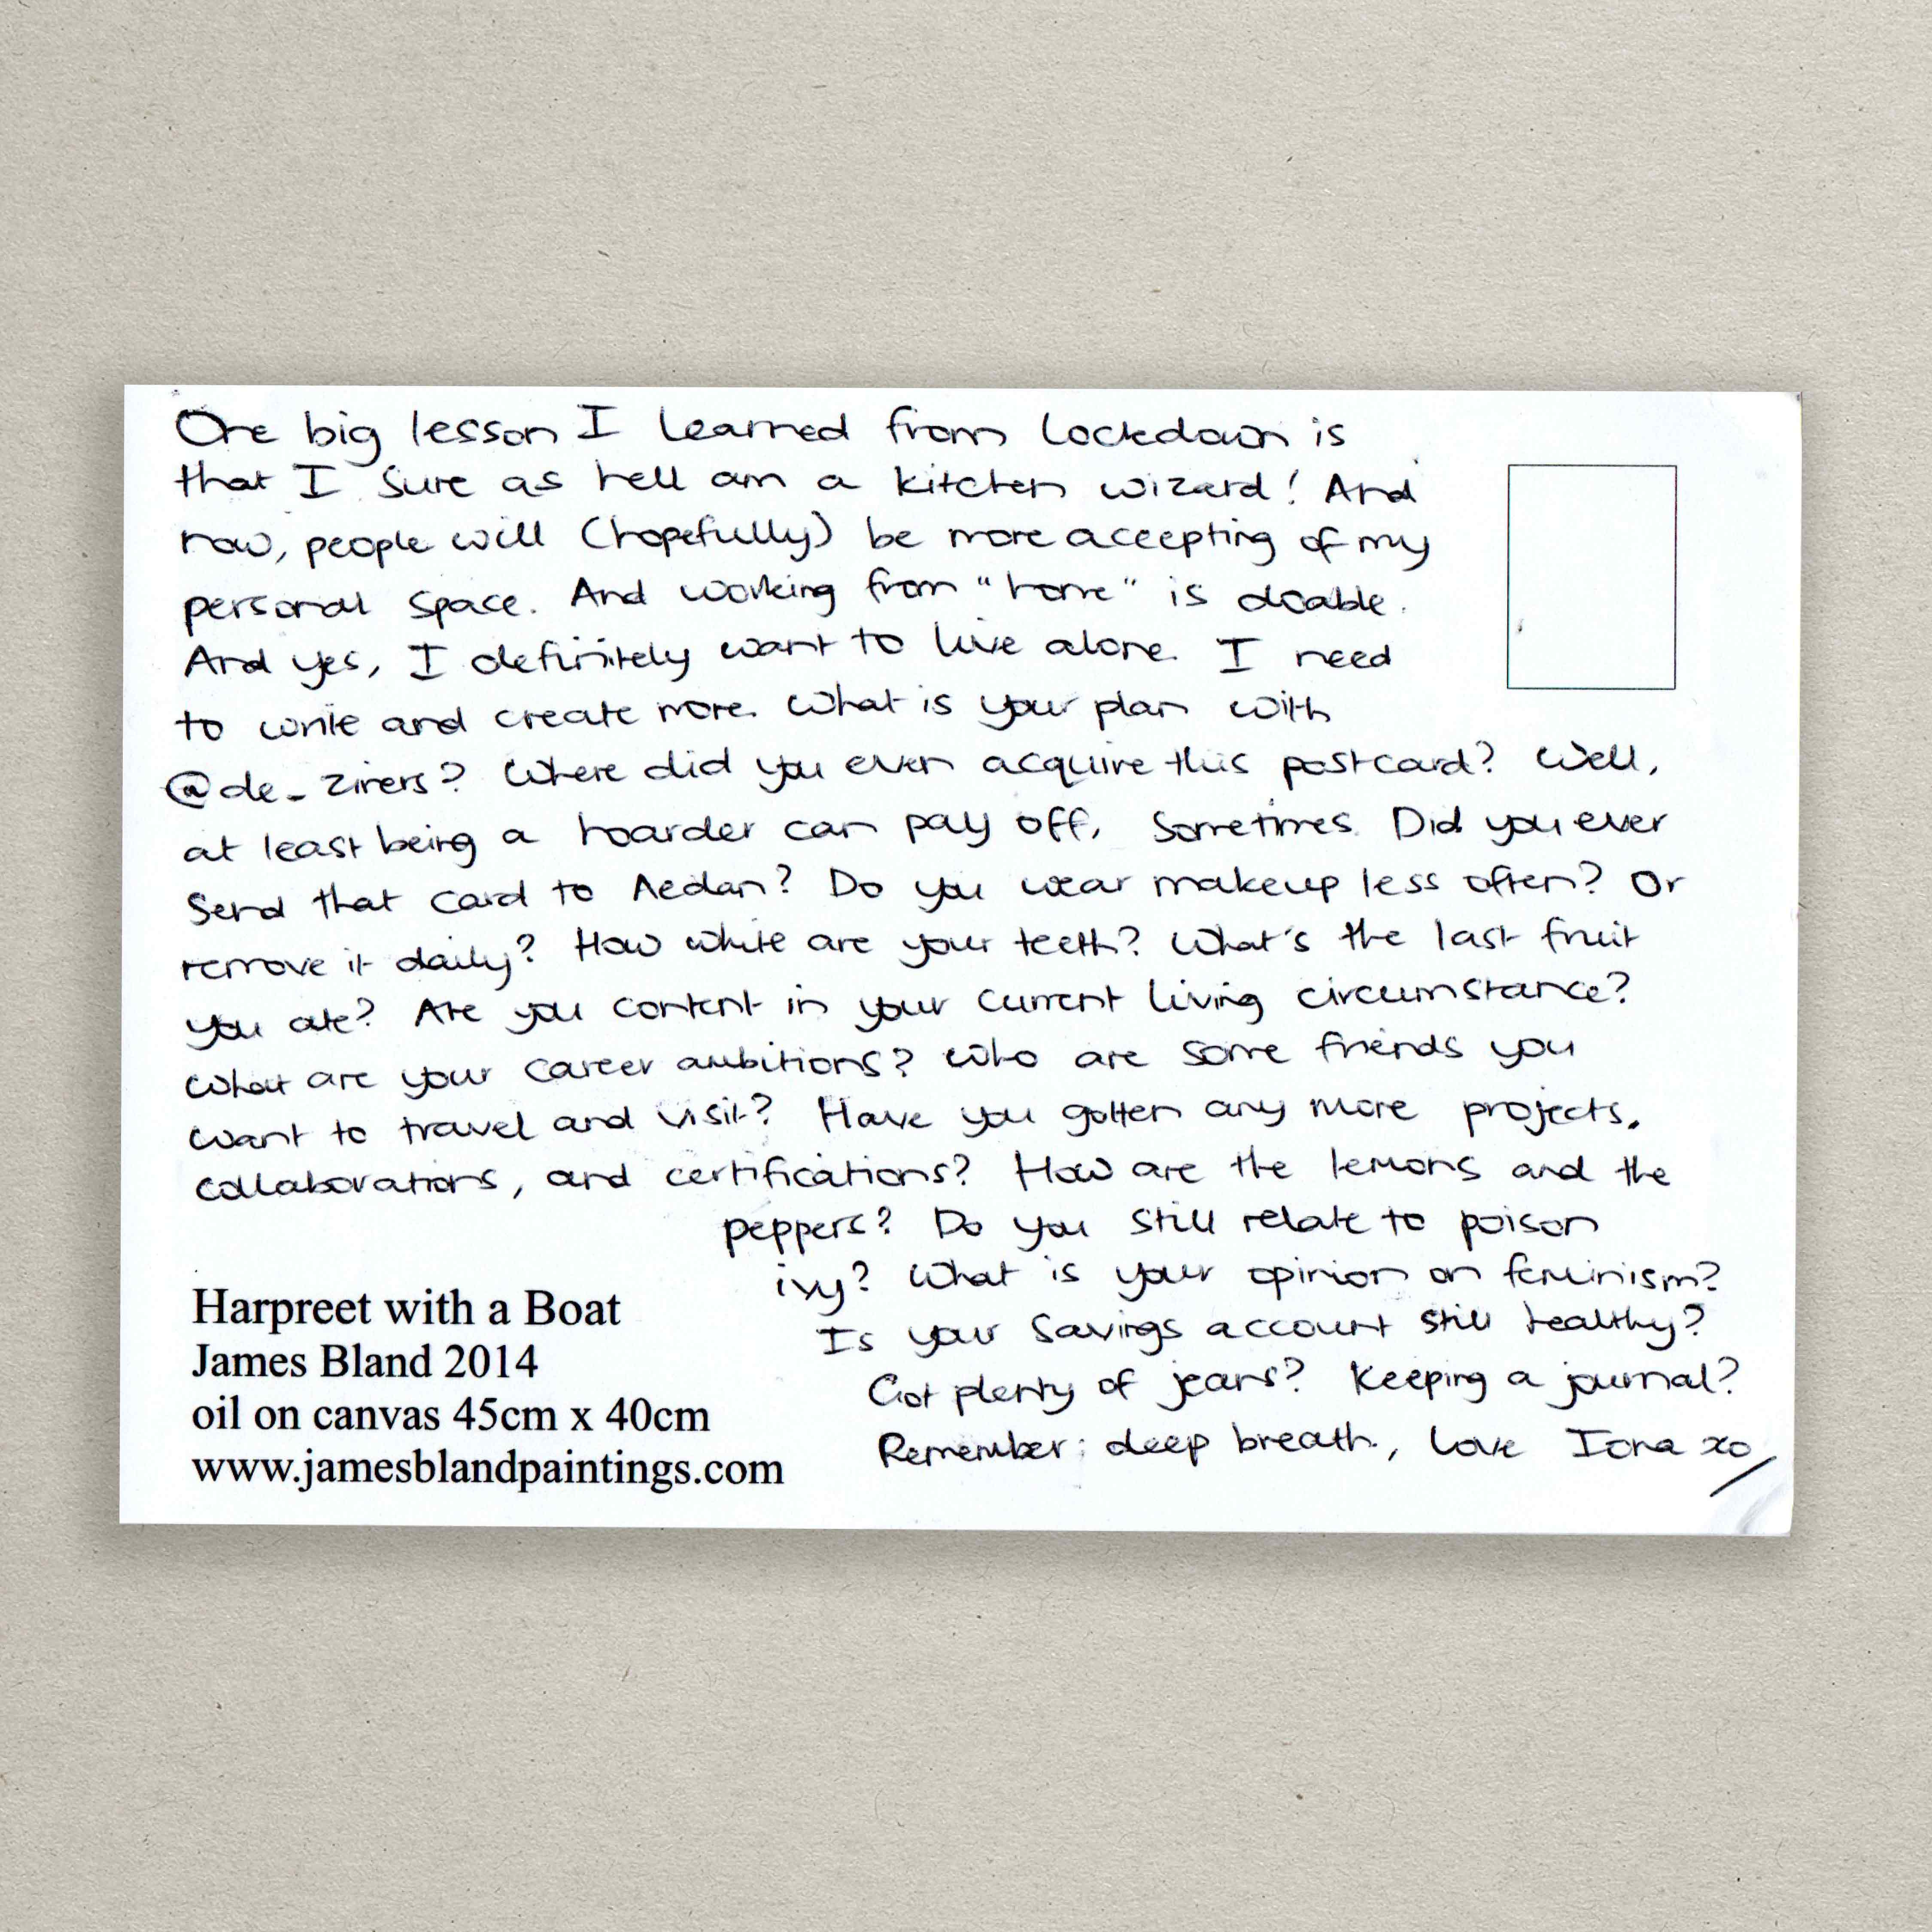 One big lesson I learned from lockdown is
that I sure as hell am a kitchen wizard! And
now, people will (hopefully) be more accepting of my
personal space. And working from "home" is doable.
And yes, I definitely want to live alone. I need
to write and create more. What is your plan with
@de_zirers? Where did you even acquire this postcard? Well,
at least being a hoarder can pay off, sometimes. Did you ever
send that card to Aedan? Do you wear makeup less often? Or
remove it daily? How white are your teeth? What's the last fruit
you ate? Are you content in your current living circumstance?
What are your career ambitions? Who are some friends you
want to travel and visit? Have you gotten any more projects,
collaborations, and certifications? How are the lemons and the
peppers? Do you still relate to poison
ivy? What is your opinion on feminism?
Is your savings account still healthy?
Got plenty of jeans? Keeping a journal?
Remember: deep breath, love Iona xo
Harpreet with a Boat
James Bland 2014
oil on canvas 45cm x 40cm
www.jamesblandpaintings.com